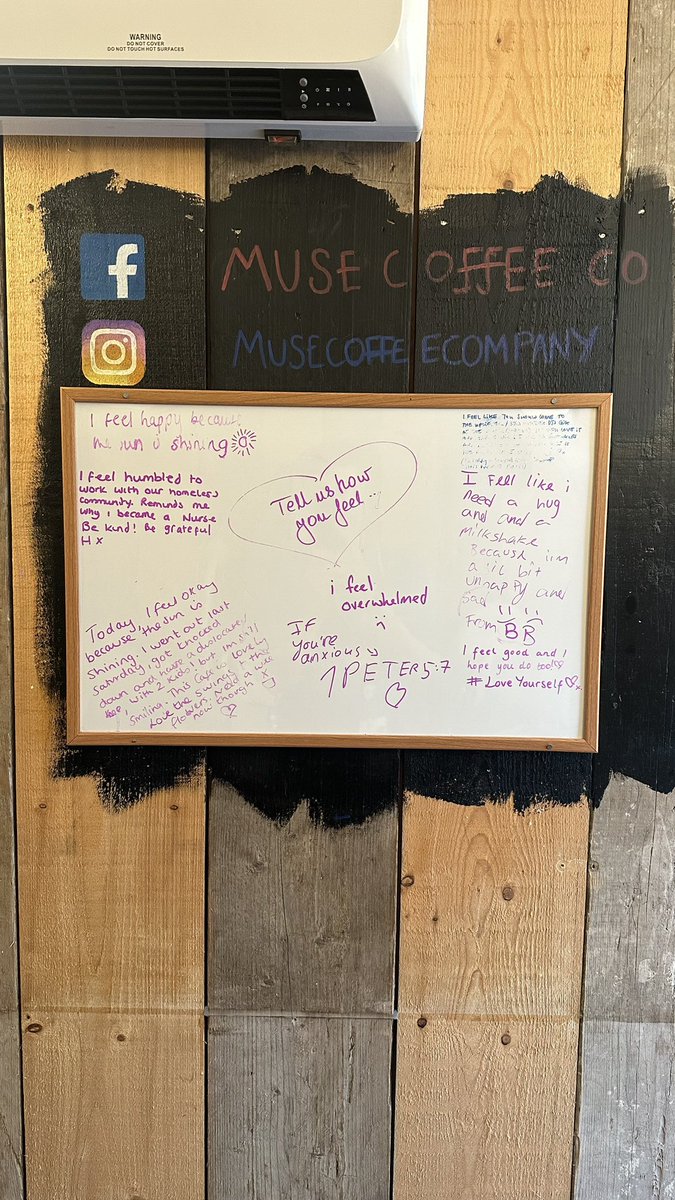 WARNING
DO NOT COVER
DO NOT TOUCH HOT SURFACES
f
MUSE COFFEE CO
MUSECOFFEECOMPANY
I feel happy because
shining
I feel humbled to
work with our homeless
community. Reminds me
why i became a Nurse
Be kind! Be grateful
H x
Tell us how
you feel...
I FEEL LIKE YOU SHOULD COME TO
I Feel like i
need a hug
and and a
milkshake
Because iim
a lil bit
unhappy and
sad
From BB
i feel
overwhelmed
:(
IF
you're
anxious
1 PETER 5:7
I feel good and I
hope you do too!♡
#LoveYourself♡x
Today, I feel okay
because, the sun is
shining. I went out last
Saturday, got knocked
down and have a dislocated
with 2 kids! but im still
smiling. This Cafe is lovely
Love the swings & the
flowers. Need a wee
now though x